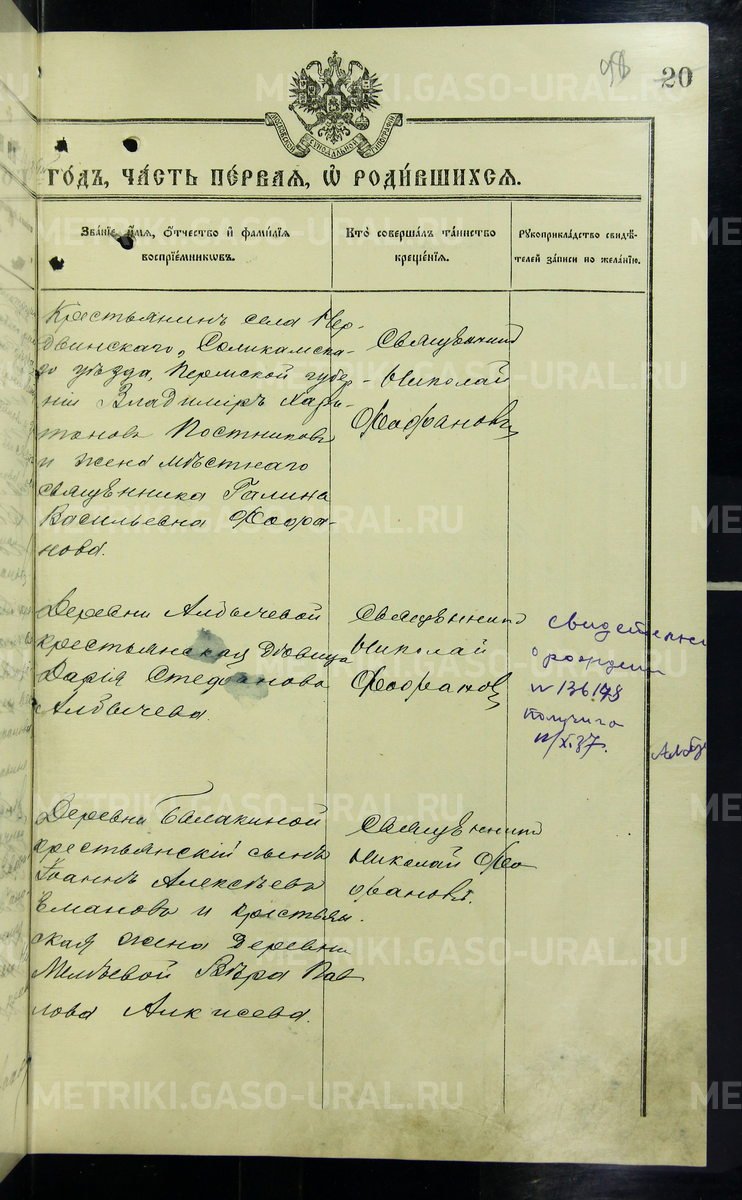 20
МОСКОВСКОЙ СѴНОДАЛЬНОЙ ТИПОГРАФІИ
ГО́ДЪ, ЧА́СТЬ ПЕ́РВАЯ, Ѡ҆ РОДИ́ВШИХСЯ.
Зва́ніе, и҆́мя, ѻ҆́тчество и҆ фами́лїя
воспріе́мникѡвъ.
Кто̀ соверша́лъ та́инство
креще́нїя.
Рꙋкоприкла́дство свидѣ́-
телей за́писи по жела́нїю.
Крестьянинъ села Нер-
двинскаго, Соликамска-
го уѣзда, Пермской губер-
ніи Владиміръ Хари-
тоновъ Постниковъ
и жена мѣстнаго
священника Галина
Васильевна Фофа-
нова.
Священникъ
Николай
Фофановъ
Деревни
крестьянская дѣвица
Дарія Стефанова
Священникъ
Николай
Фофановъ
свидетельство
о рождении
№ 136148
получила
11/XI.37.
Деревни Балакиной
крестьянскій сынъ
Іоаннъ Алексѣевъ
Емановъ и крестьян-
ская жена деревни
Вѣра Пав-
лова
Священникъ
Николай Фо-
фановъ.
METRIKI.GASO-URAL.RU